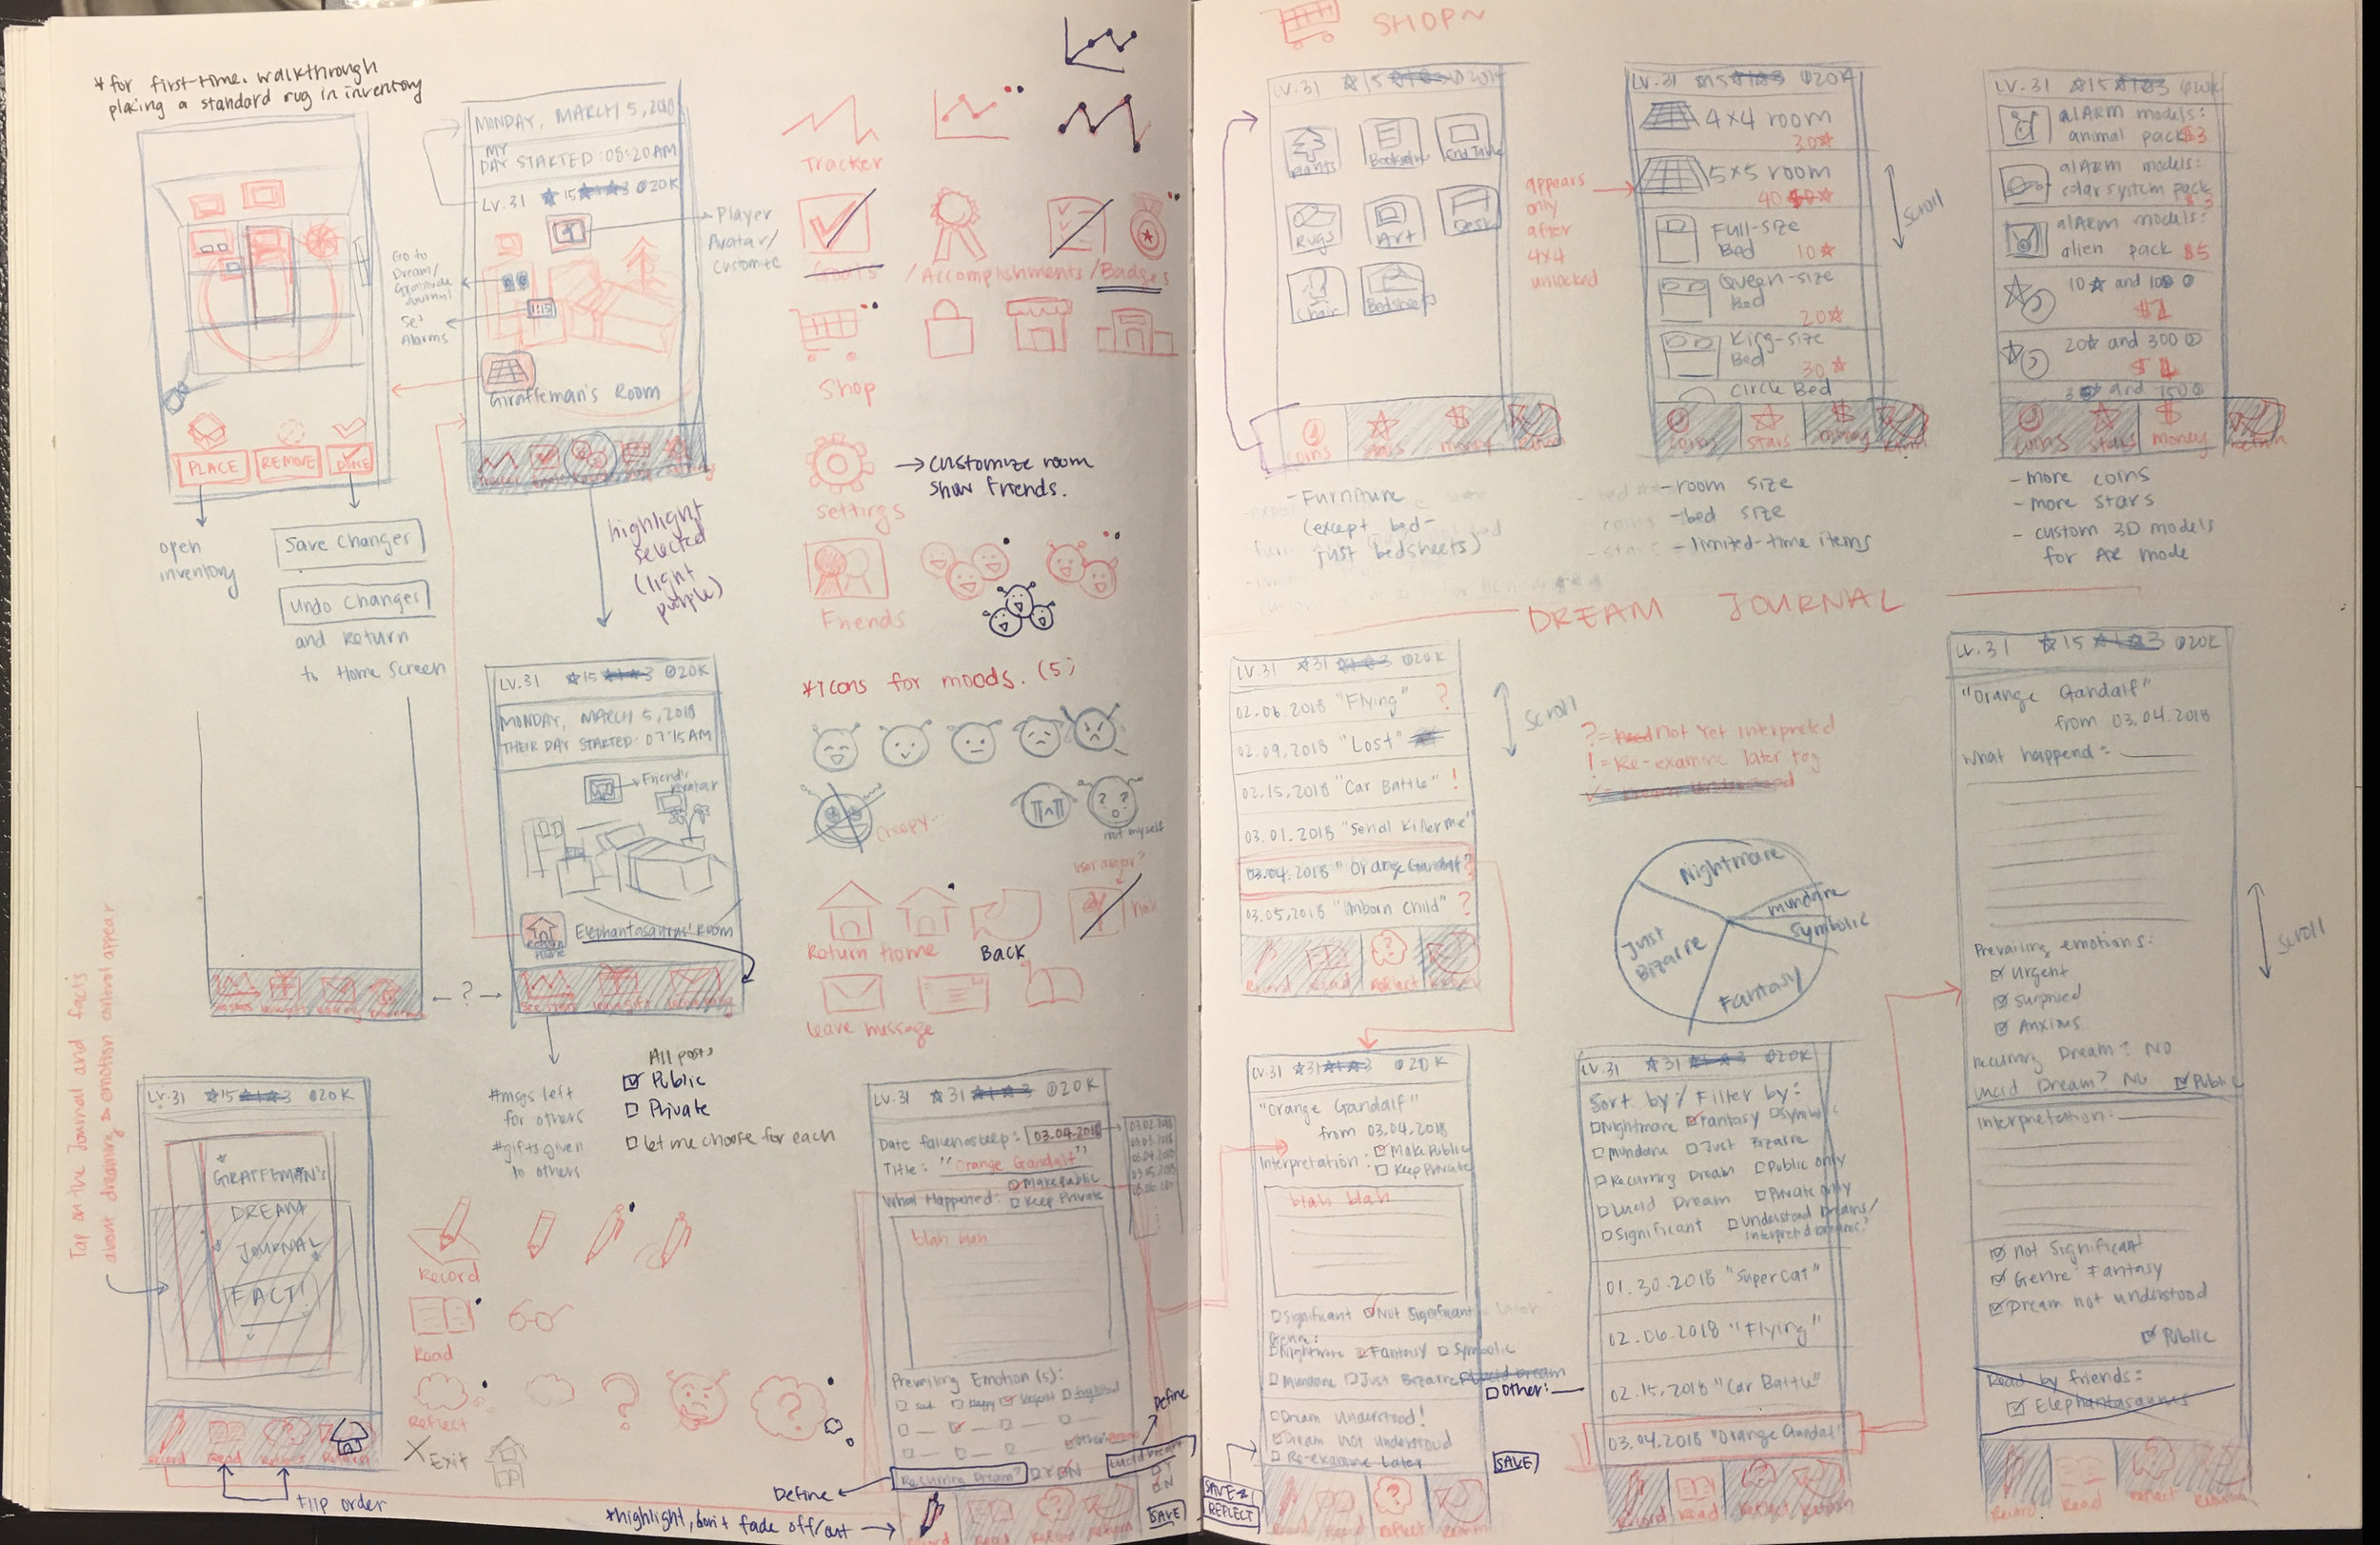 *for first-time. walkthrough
placing a standard rug in inventory
PLACE
REMOVE
DONE
open
inventory
Save Changes
Undo Changes
and Return
to Home Screen
MONDAY, MARCH 5, 2018
MY
DAY STARTED: 08:20AM
LV. 31 ☆15 20K
Player
Avatar/
Customize
Go to
Dream/
Gratitude
Journal
Set
Alarms
1:15
Giraffeman's Room
highlight
selected
(light
purple)
Tracker
Goals
/Accomplishments/Badges
Shop
Settings
→ customize room
show friends.
Friends
*icons for moods. (5)
creepy...
not myself
Return Home
Back
nah
leave message
LV.31 ☆15 20K
MONDAY, MARCH 5, 2018
THEIR DAY STARTED: 07:15AM
Friend's
Avatar
Return
Home
Elephantasaurus' Room
← ? →
#msgs left
for others
#gifts given
to others
All posts
☑ Public
☐ Private
☐ Let me choose for each
Tap on the Journal and facts
about dreaming & emotion control appear
LV.31 ☆15 20K
GIRAFFEMAN'S
DREAM
JOURNAL
FACT!
Flip order
Record
Read
Reflect
X Exit
LV.31 ☆31 20K
Date fallen asleep: 03.04.2018
Title: "Orange Gandalf"
☐ Make Public
What Happened: ☐ Keep Private
blah blah
Prevailing Emotion(s):
Recurring Dream? ☐Y ☐N
Lucid Dream
Define
Define
*highlight, don't fade off/out →
SAVE
SHOP~
LV.31 ☆15
Plants
Bookshelves
End Table
Rugs
Art
Desk
Chair
Bedsheets
coins
stars
money
- Furniture
(except bed-
just bedsheets)
appears
only
after
4x4
unlocked
LV.31 20K
4x4 room
30☆
5x5 room
40
Full-size
Bed
10☆
Queen-size
Bed
20☆
King-size
Bed
30☆
Circle Bed
coins
stars
money
Scroll
- room size
- bed size
- limited-time items
LV.31 ☆15
alARm models:
animal pack $3
alARm models:
solar system pack
$3
alARm models:
alien pack $5
20☆ and 300
coins
stars
money
Return
- more coins
- more stars
- custom 3D models
for AR mode
DREAM JOURNAL
LV.31 ☆31 20K
02.06.2018 "Flying" ?
02.09.2018 "Lost"
02.15.2018 "Car Battle" !
03.01.2018 "Serial Killer me"
03.04.2018 "Orange Gandalf" ?
03.05.2018 "Unborn Child" ?
Reflect
Scroll
? = Not Yet interpreted
! = Re-examine later tag
Nightmare
mundane
Symbolic
Fantasy
Just
Bizarre
LV.31 ☆31 20K
"Orange Gandalf"
from 03.04.2018
Interpretation: ☑ Make Public
☐ Keep Private
blah blah
☐ Significant ☑ Not Significant
Genre:
☐ Nightmare ☑ Fantasy ☐ Symbolic
☐ Mundane ☐ Just Bizarre
☐ Other:
☐ Dream Understood!
☐ Dream not understood
☐ Re-examine Later
SAVE
SAVE &
REFLECT
Reflect
LV.31 ☆31 20K
Sort by / Filter by:
☐ Nightmare ☑ Fantasy ☐ Symbolic
☐ Mundane ☐ Just Bizarre
☐ Recurring Dream ☐ Public only
☐ Lucid Dream ☐ Private only
☐ Significant ☐ Understood Dreams/
Interpreted Dreams?
01.30.2018 "Supercat"
02.06.2018 "Flying"
02.15.2018 "Car Battle"
03.04.2018 "Orange Gandalf"
Record
Read
Reflect
Return
LV.31 ☆15 20K
"Orange Gandalf"
from 03.04.2018
What happend:
Prevailing emotions:
☑ Urgent
☑ Surprised
☑ Anxious
Recurring Dream? NO
Lucid Dream? NO ☑ Public
Interpretation:
☑ Not Significant
☑ Genre: Fantasy
☑ Dream not understood
☑ Public
Read by friends:
☑ Elephantasaurus
Record
Read
Reflect
Scroll